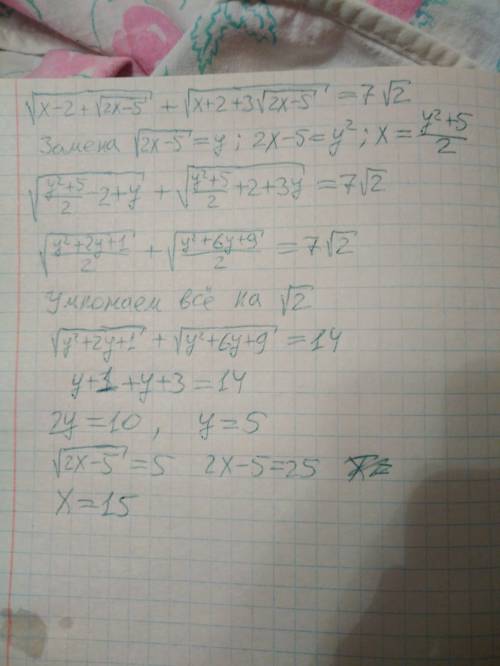 √(x-2+√(2x-5)) + √(x+2+3√(2x-5)) = 7√2
Замена √(2x-5) = y ; 2x-5 = y² ; x = (y²+5)/2
√((y²+5)/2 - 2 + y) + √((y²+5)/2 + 2 + 3y) = 7√2
√((y²+2y+1)/2) + √((y²+6y+9)/2) = 7√2
Умножаем всё на √2
√(y²+2y+1) + √(y²+6y+9) = 14
y+1+y+3=14
2y=10, y=5
√(2x-5) = 5 2x-5=25
x=15